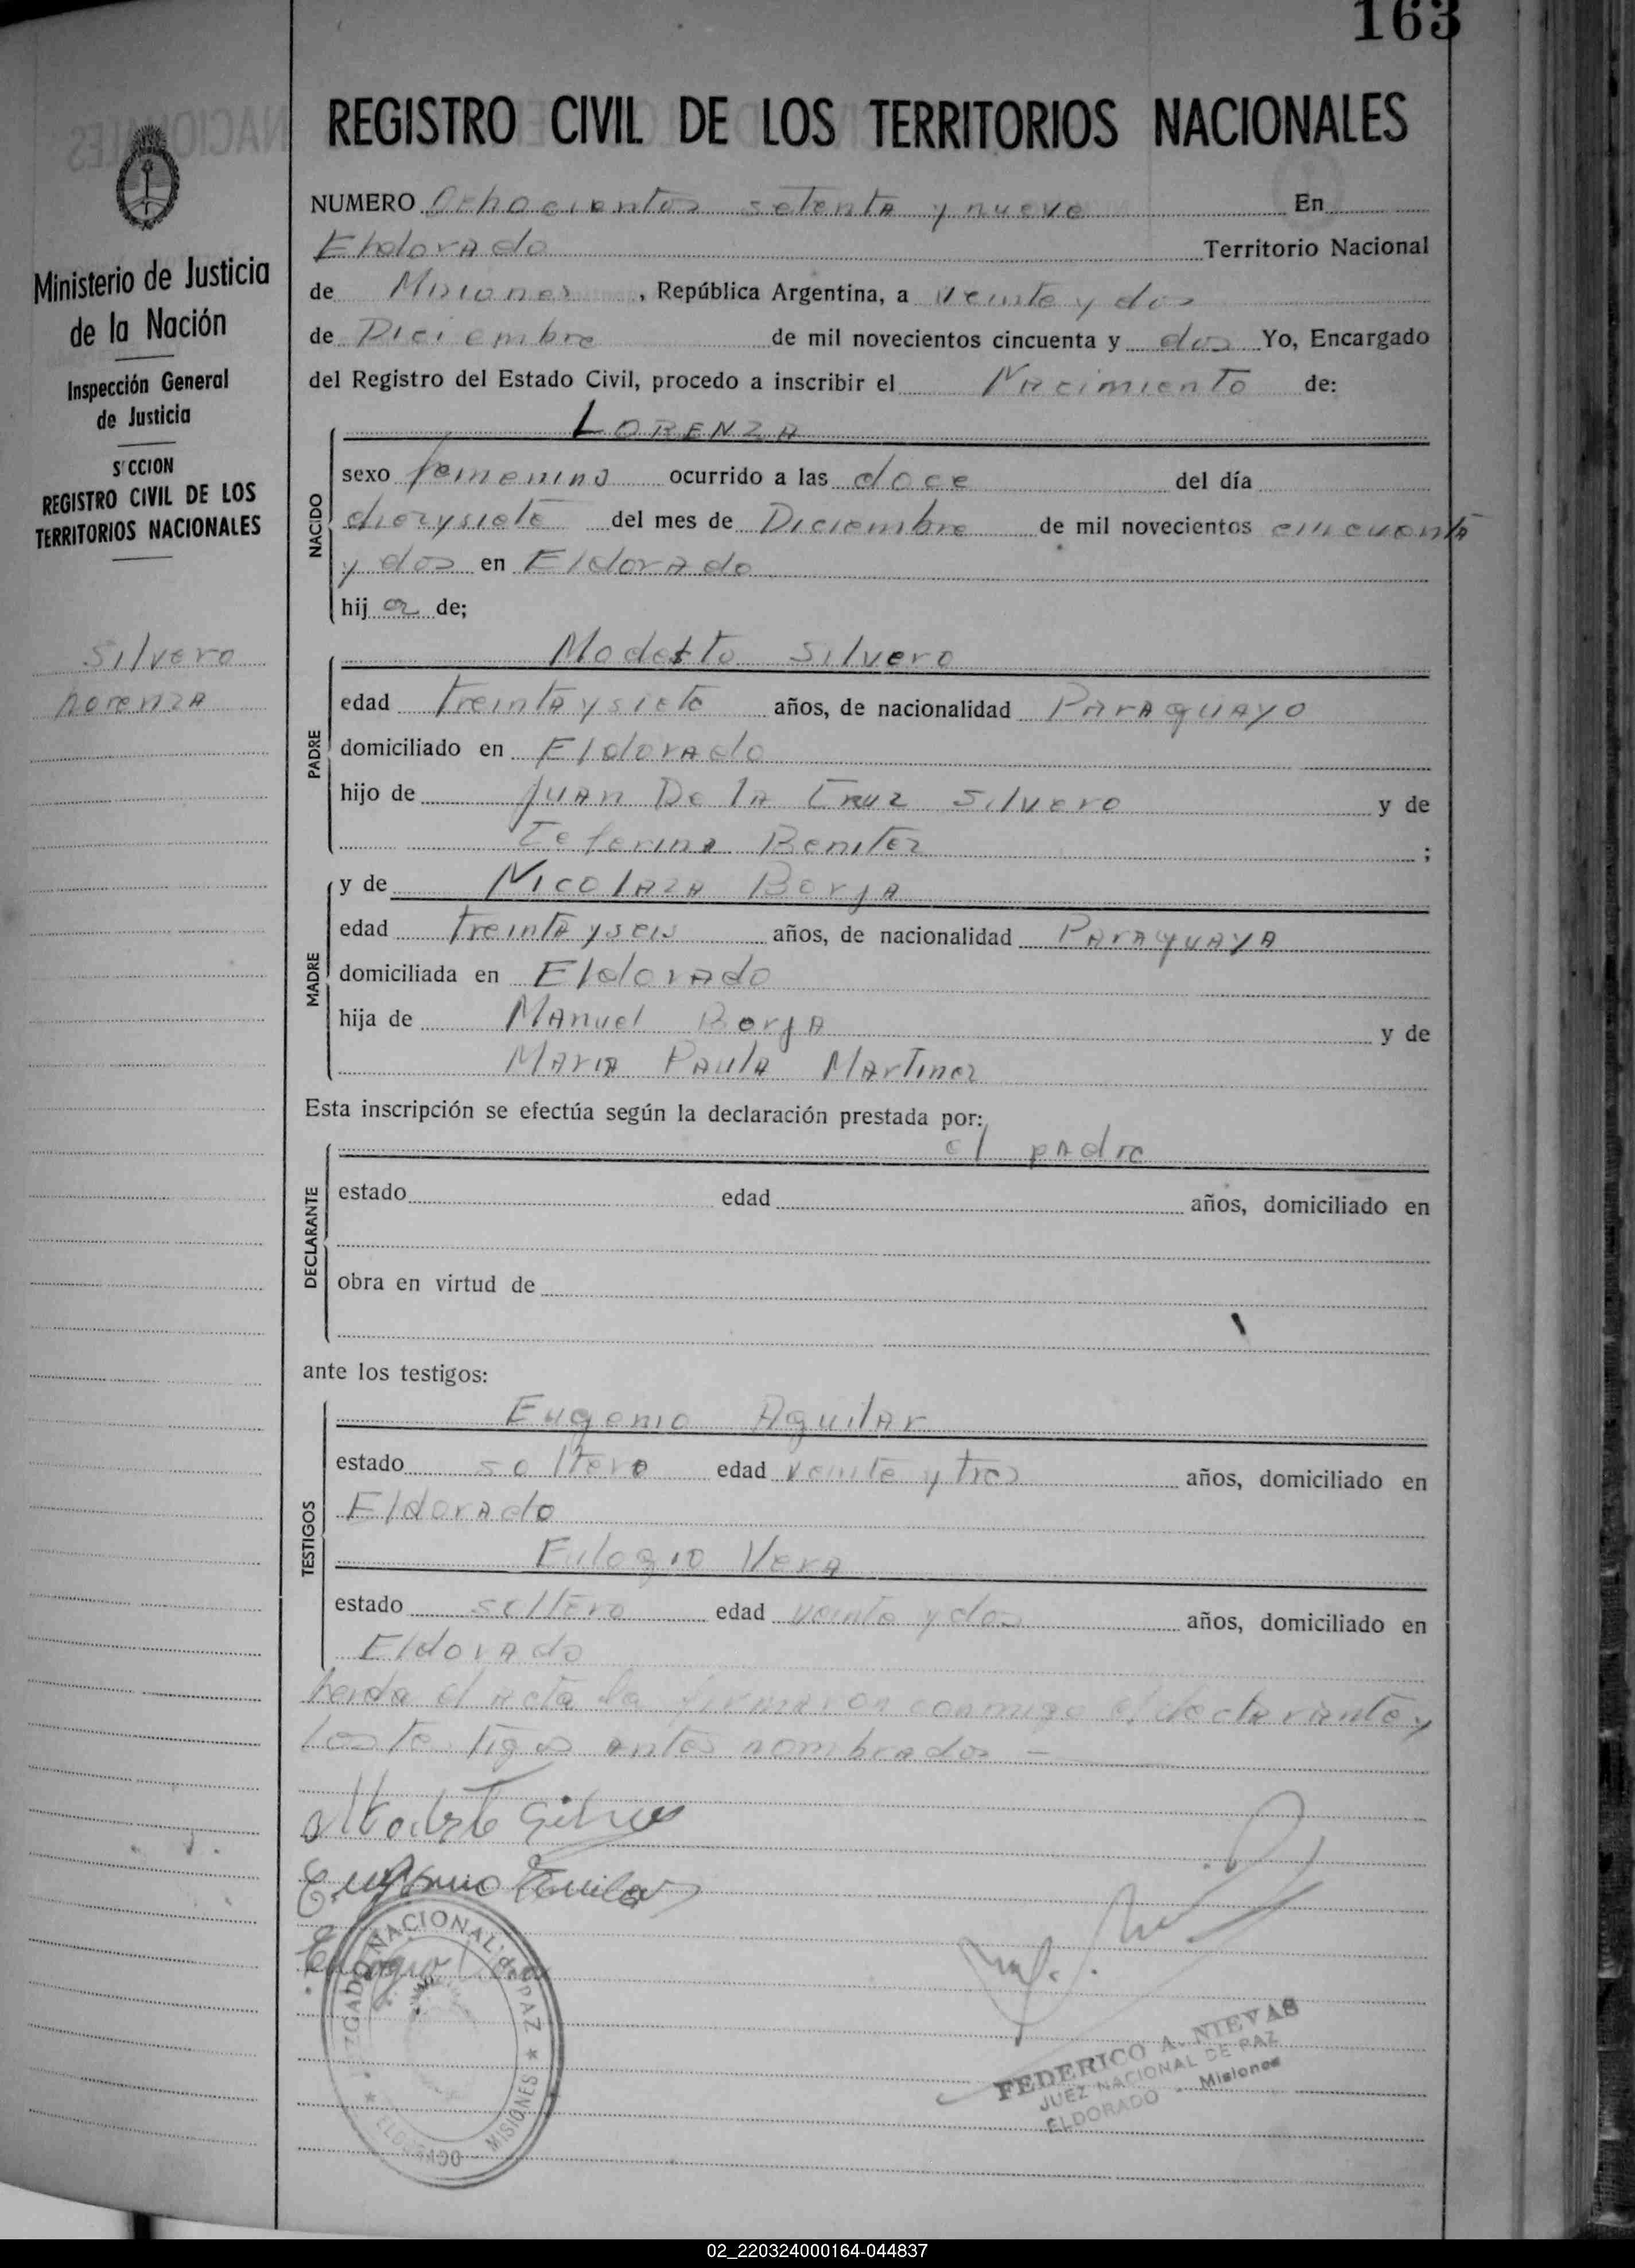 163
REGISTRO CIVIL DE LOS TERRITORIOS NACIONALES
Ministerio de Justicia
de la Nación
Inspección General
de Justicia
S CCION
REGISTRO CIVIL DE LOS
TERRITORIOS NACIONALES
Silvero
Lorenza
NUMERO Ochocientos setenta y nueve En
Eldorado Territorio Nacional
de Misiones, República Argentina, a veinte y dos
de Diciembre de mil novecientos cincuenta y dos Yo, Encargado
del Registro del Estado Civil, procedo a inscribir el Nacimiento de:
LORENZA
NACIDO
sexo femenino ocurrido a las doce del día
diezysiete del mes de Diciembre de mil novecientos cincuenta
y dos en Eldorado
hij a de;
Modesto Silvero
PADRE
edad treinta y siete años, de nacionalidad Paraguayo
domiciliado en Eldorado
hijo de Juan De la Cruz Silvero y de
Ceferina Benitez ;
y de Nicolaza Borja
MADRE
edad treinta y seis años, de nacionalidad Paraguaya
domiciliada en Eldorado
hija de Manuel Borja y de
Maria Paula Martinez
Esta inscripción se efectúa según la declaración prestada por:
el padre
DECLARANTE
estado edad años, domiciliado en
obra en virtud de
ante los testigos:
Eugenio Aguilar
TESTIGOS
estado soltero edad veinte y tres años, domiciliado en
Eldorado
Eulogio Vera
estado soltero edad veinte y dos años, domiciliado en
Eldorado
Leida el acta la firmaron conmigo el declarante y
los testigos antes nombrados —
Modesto Silvero
Eugenio Aguilar
Eulogio Vera
JUZGADO NACIONAL de PAZ ★ MISIONES ELDORADO ★
FEDERICO A. NIEVAS
JUEZ NACIONAL DE PAZ
ELDORADO - Misiones
02_220324000164-044837